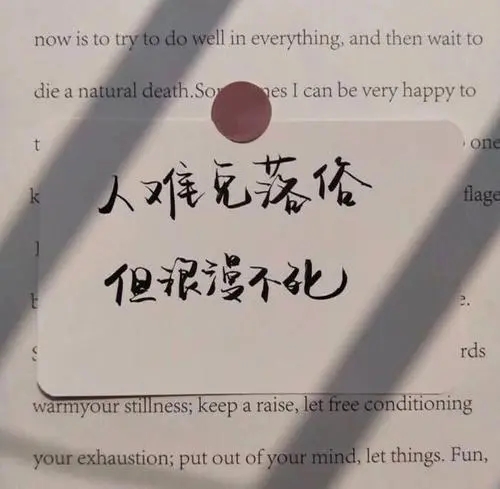 now is to try to do well in everything, and then wait to
die a natural death.Som es I can be very happy to
t
one
k
flage
人难免落俗
但浪漫不死
e.
rds
warmyour stillness; keep a raise, let free conditioning
your exhaustion; put out of your mind, let things. Fun,